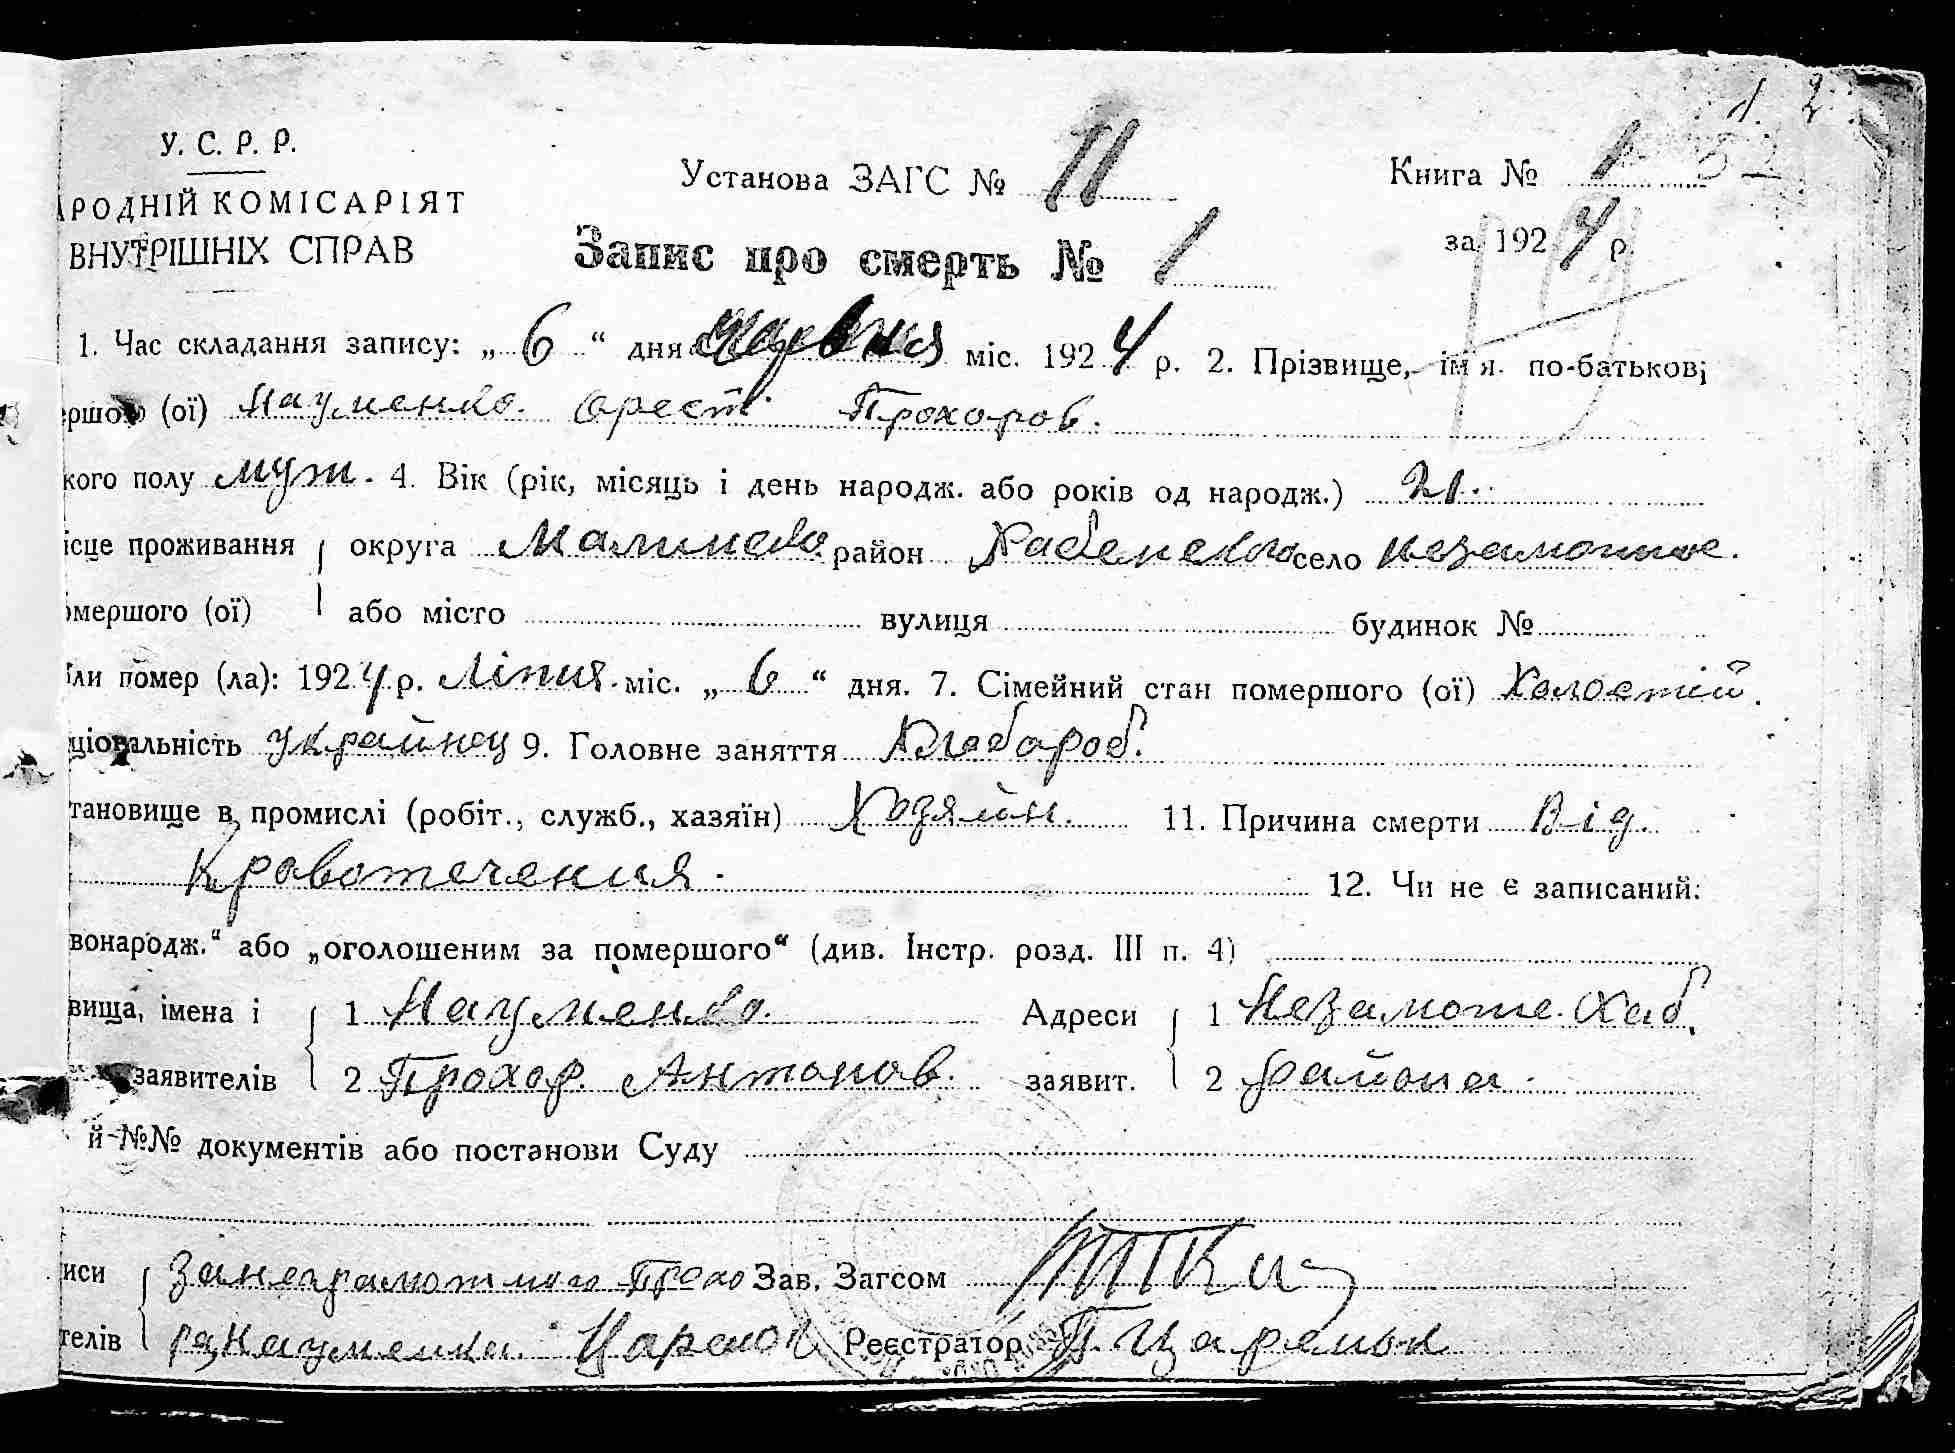 1. 2.
У. С. Р. Р.
Установа ЗАГС № 11
Книга № 1 52
РОДНІЙ КОМІСАРІЯТ
ВНУТРІШНІХ СПРАВ
за 1924 р.
Запис про смерть № 1
1. Час складання запису: „ 6 “ дня міс. 1924 р. 2. Прізвище, ім я. по-батькові
ершого (ої) Науменко. Орест Прохоров.
кого полу муж. 4. Вік (рік, місяць і день народж. або років од народж.) 21.
ісце проживання округа район село
омершого (ої) або місто вулиця будинок №
ли помер (ла): 1924 р. Ліпня. міс. „ 6 “ дня. 7. Сімейний стан помершого (ої) Холостій.
ціональність украйнец 9. Головне заняття Хлебороб.
тановище в промислі (робіт., служб., хазяїн) Хозяйн. 11. Причина смерти Від.
Кровотечения. 12. Чи не є записаний:
вонародж.“ або „оголошеним за помершого“ (див. Інстр. розд. III п. 4)
вища, імена і 1 Науменко. Адреси 1 Незаможе. Хаб.
заявителів 2 Прохор. Антонов. заявит. 2 района.
й №№ документів або постанови Суду
иси Прохо Зав. Загсом
телів ра Науменка. Реєстратор П.